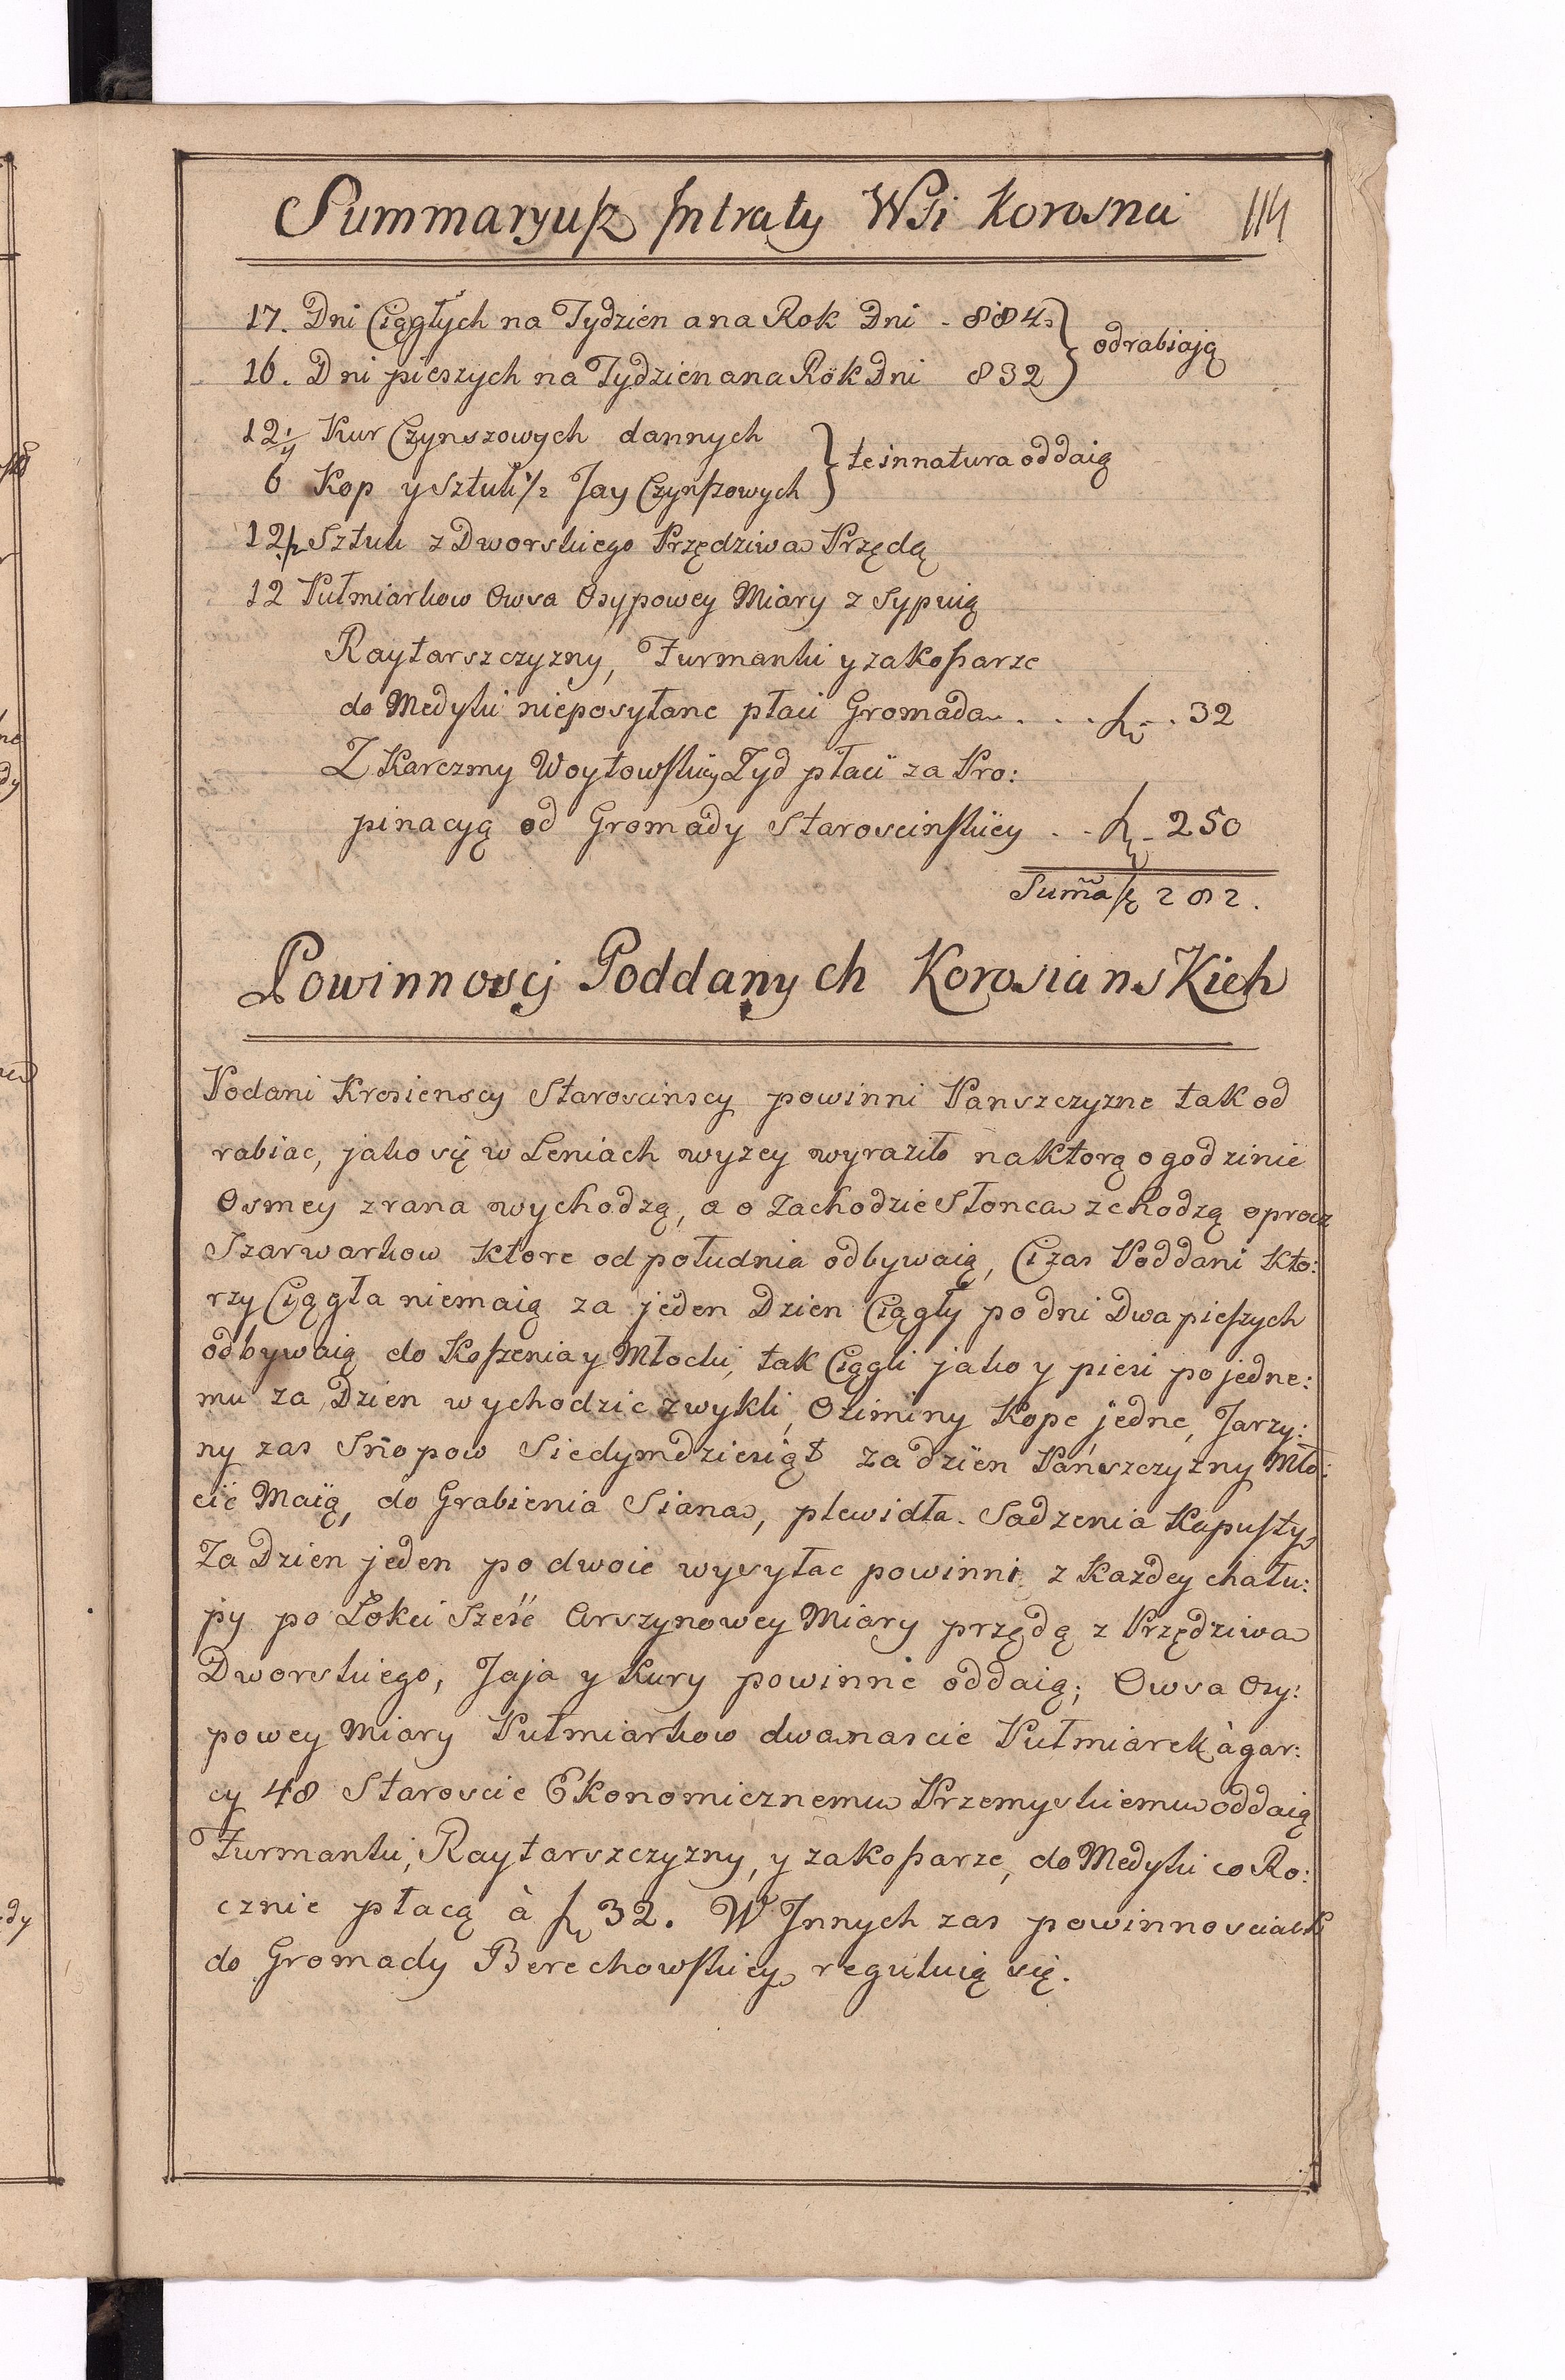 Summaryusz Intraty Wsi Korosna 114
17. Dni Ciągłych na Tydzien a na Rok Dni - 884 } odrabiają
16. Dni pieszych na Tydzien a na Rok Dni 832
12 1/4 Kur Czynszowych dannych } te in natura oddaią
6 Kop y Sztuk 1/2 Jay Czynszowych
12 1/2 Sztuk z Dworskiego Przędziwa Przędą
12 Pułmiarkow Owsa Osypowey Miary z Sypuią
Raytarszczyzny, Furmanki y za kosiarze
do Medyki nieposyłane płaci Gromada . . . . 32
Z Karczmy Woytowskiey Żyd płaci za Pro:
pinacyą od Gromady Staroscinskiey . . - 250
Summa 282.
Powinnosci Poddanych Korosianskich
Podani Krosienscy Staroscinscy powinni Panszczyzne tak od
rabiac, jako się w Leniach wyzey wyraziło na ktorą o godzinie
Osmey z rana wychodzą, a o Zachodzie Słonca zchodzą oprocz
Szarwarkow ktore od południa odbywaią, Ci zas Poddani Kto:
rzy Ciągła niemaią za jeden Dzien Ciągły po dni Dwa pieszych
odbywaią do Koszenia y Młocki, tak Ciągli jako y piesi po jedne:
mu za Dzien wychodzic zwykli, Oziminy Kope jedne, Jarzy:
ny zas Snopow Siedymdziesiąt za dzien Panszczyzny Mło:
cic Maią, do Grabienia Siana, plewidła. Sadzenia Kapusty
Za Dzien jeden po dwoie wysyłac powinni z Kazdey chału:
py po Łokci Szesc Arszynowey Miary przędą z Przędziwa
Dworskiego, Jaja y Kury powinne oddaią; Owsa Osy:
powey Miary Pułmiarkow dwanascie Pułmiarek à gar:
cy 48 Staroscie Ekonomicznemu Przemyskiemu oddaią
Furmanki, Raytarszczyzny, y za kosiarze, do Medyki co Ro:
cznie płacą à 32. W Innych zas powinnosciach
do Gromady Berechowskiey reguluią się.